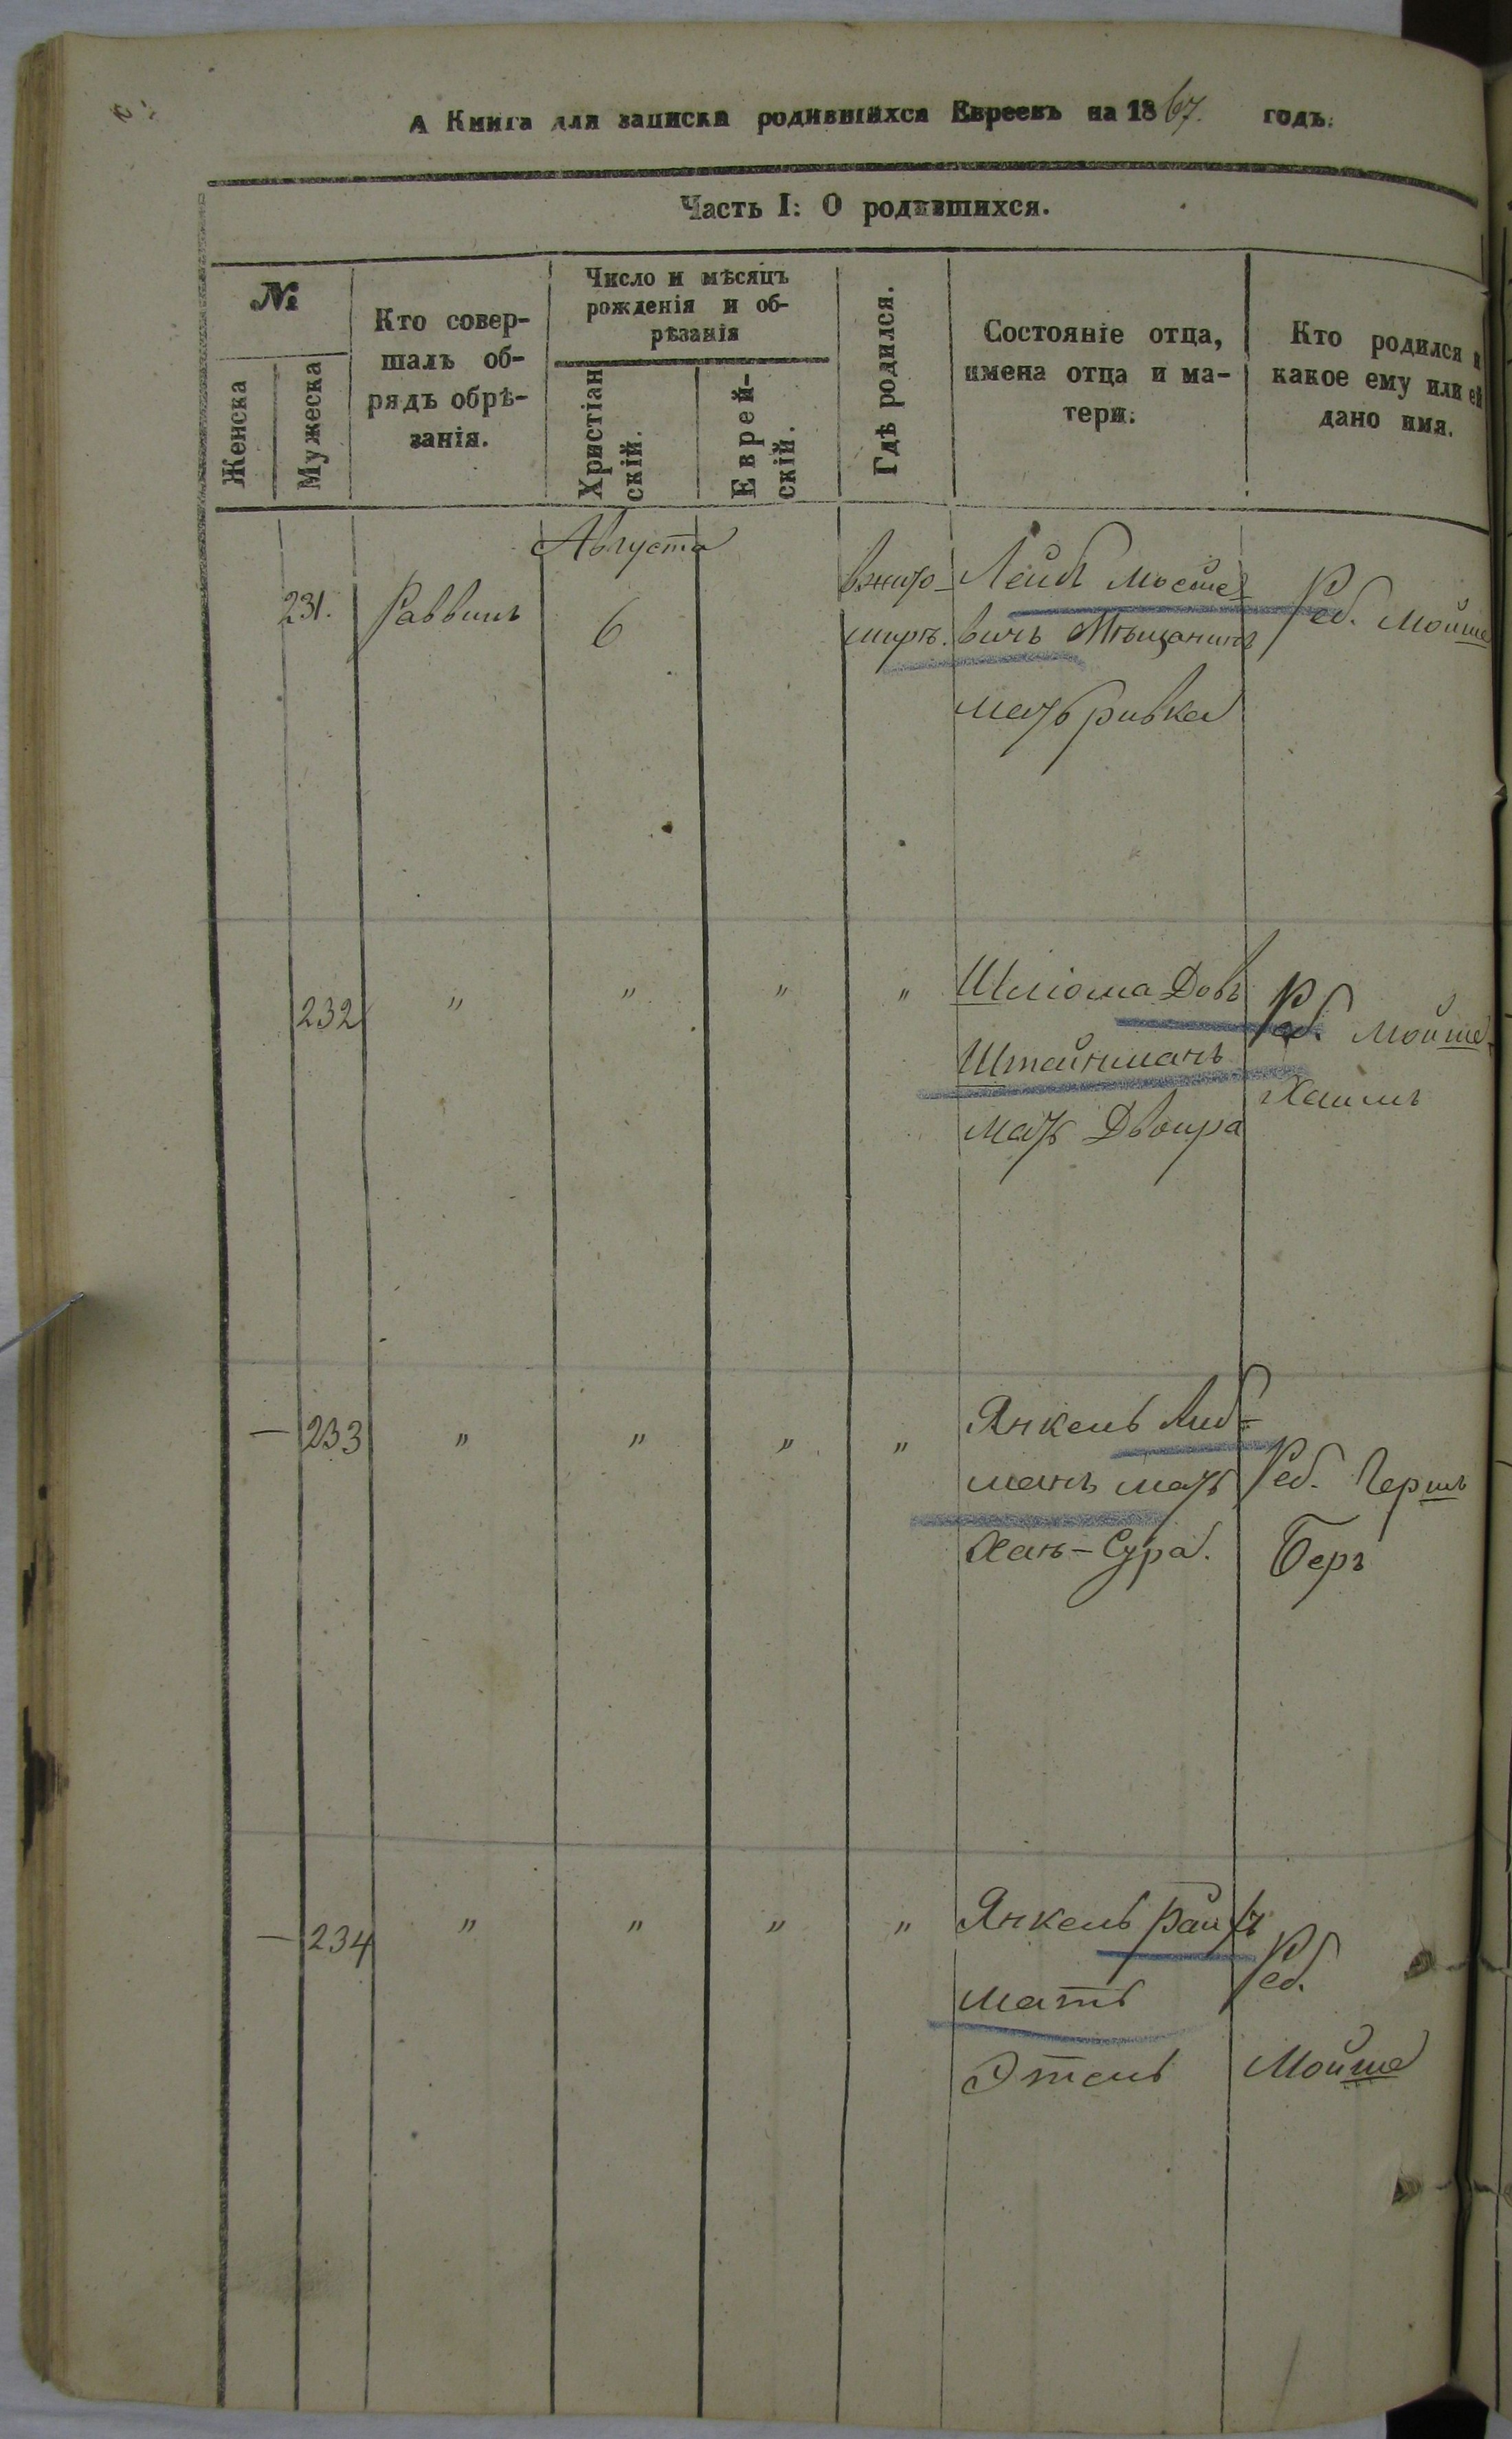 А Книга для записки родившихся Евреевъ на 1867. годъ.
Часть I: О родившихся.
№
Женска
Мужеска
Кто совер-
шалъ об-
рядъ обрѣ-
занія.
Число и мѣсяцъ
рожденія и об-
рѣзанія
Христіан
скій.
Еврей-
скій.
Гдѣ родился.
Состояніе отца,
имена отца и ма-
тери.
Кто родился и
какое ему или ей
дано имя.
Августа
231. Раввинъ 6
вжито-
мирѣ.
Лейбъ
вичъ Мѣщанинъ
мать ривка
Реб. Мойше
232 " " " "
Шліома Довъ
Штейнманъ
мать Двойра
Реб. Мойше
Хаимъ
— 233 " " " "
Янкель Либ=
манъ мать
Хан-Сура.
Реб. Гершъ
Беръ
— 234 " " " "
Янкель
мать
Этель
Реб.
Мойше